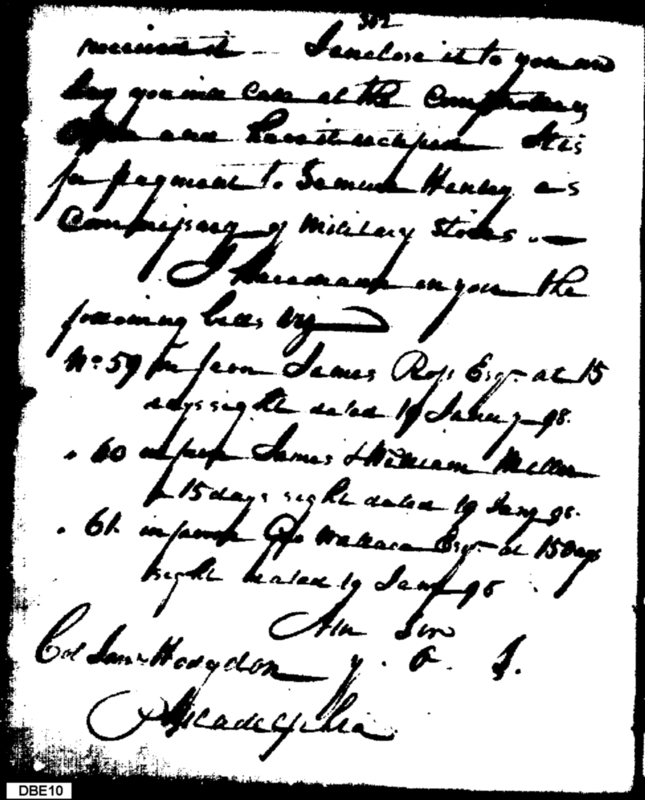 302
received it — I enclose it to you and
beg you will call at the Comptrollers
Office and have it It is
for payment to Samuel Henley as
Commissary of Military Stores. —
I have drawn on you the
following bills viz
No. 59 in favor James Ross Esqr. at 15
days sight dated 19 Jany 98.
. 60 in favor James & William Miller
a 15 days sight dated 19 Jany 98.
. 61. in favor Geo Wallace Esqr. at 15 Days
sight dated 19 Jany 98
Am Sir
Col Saml Hodgdon y. O. S.
Philadelphia
DBE10